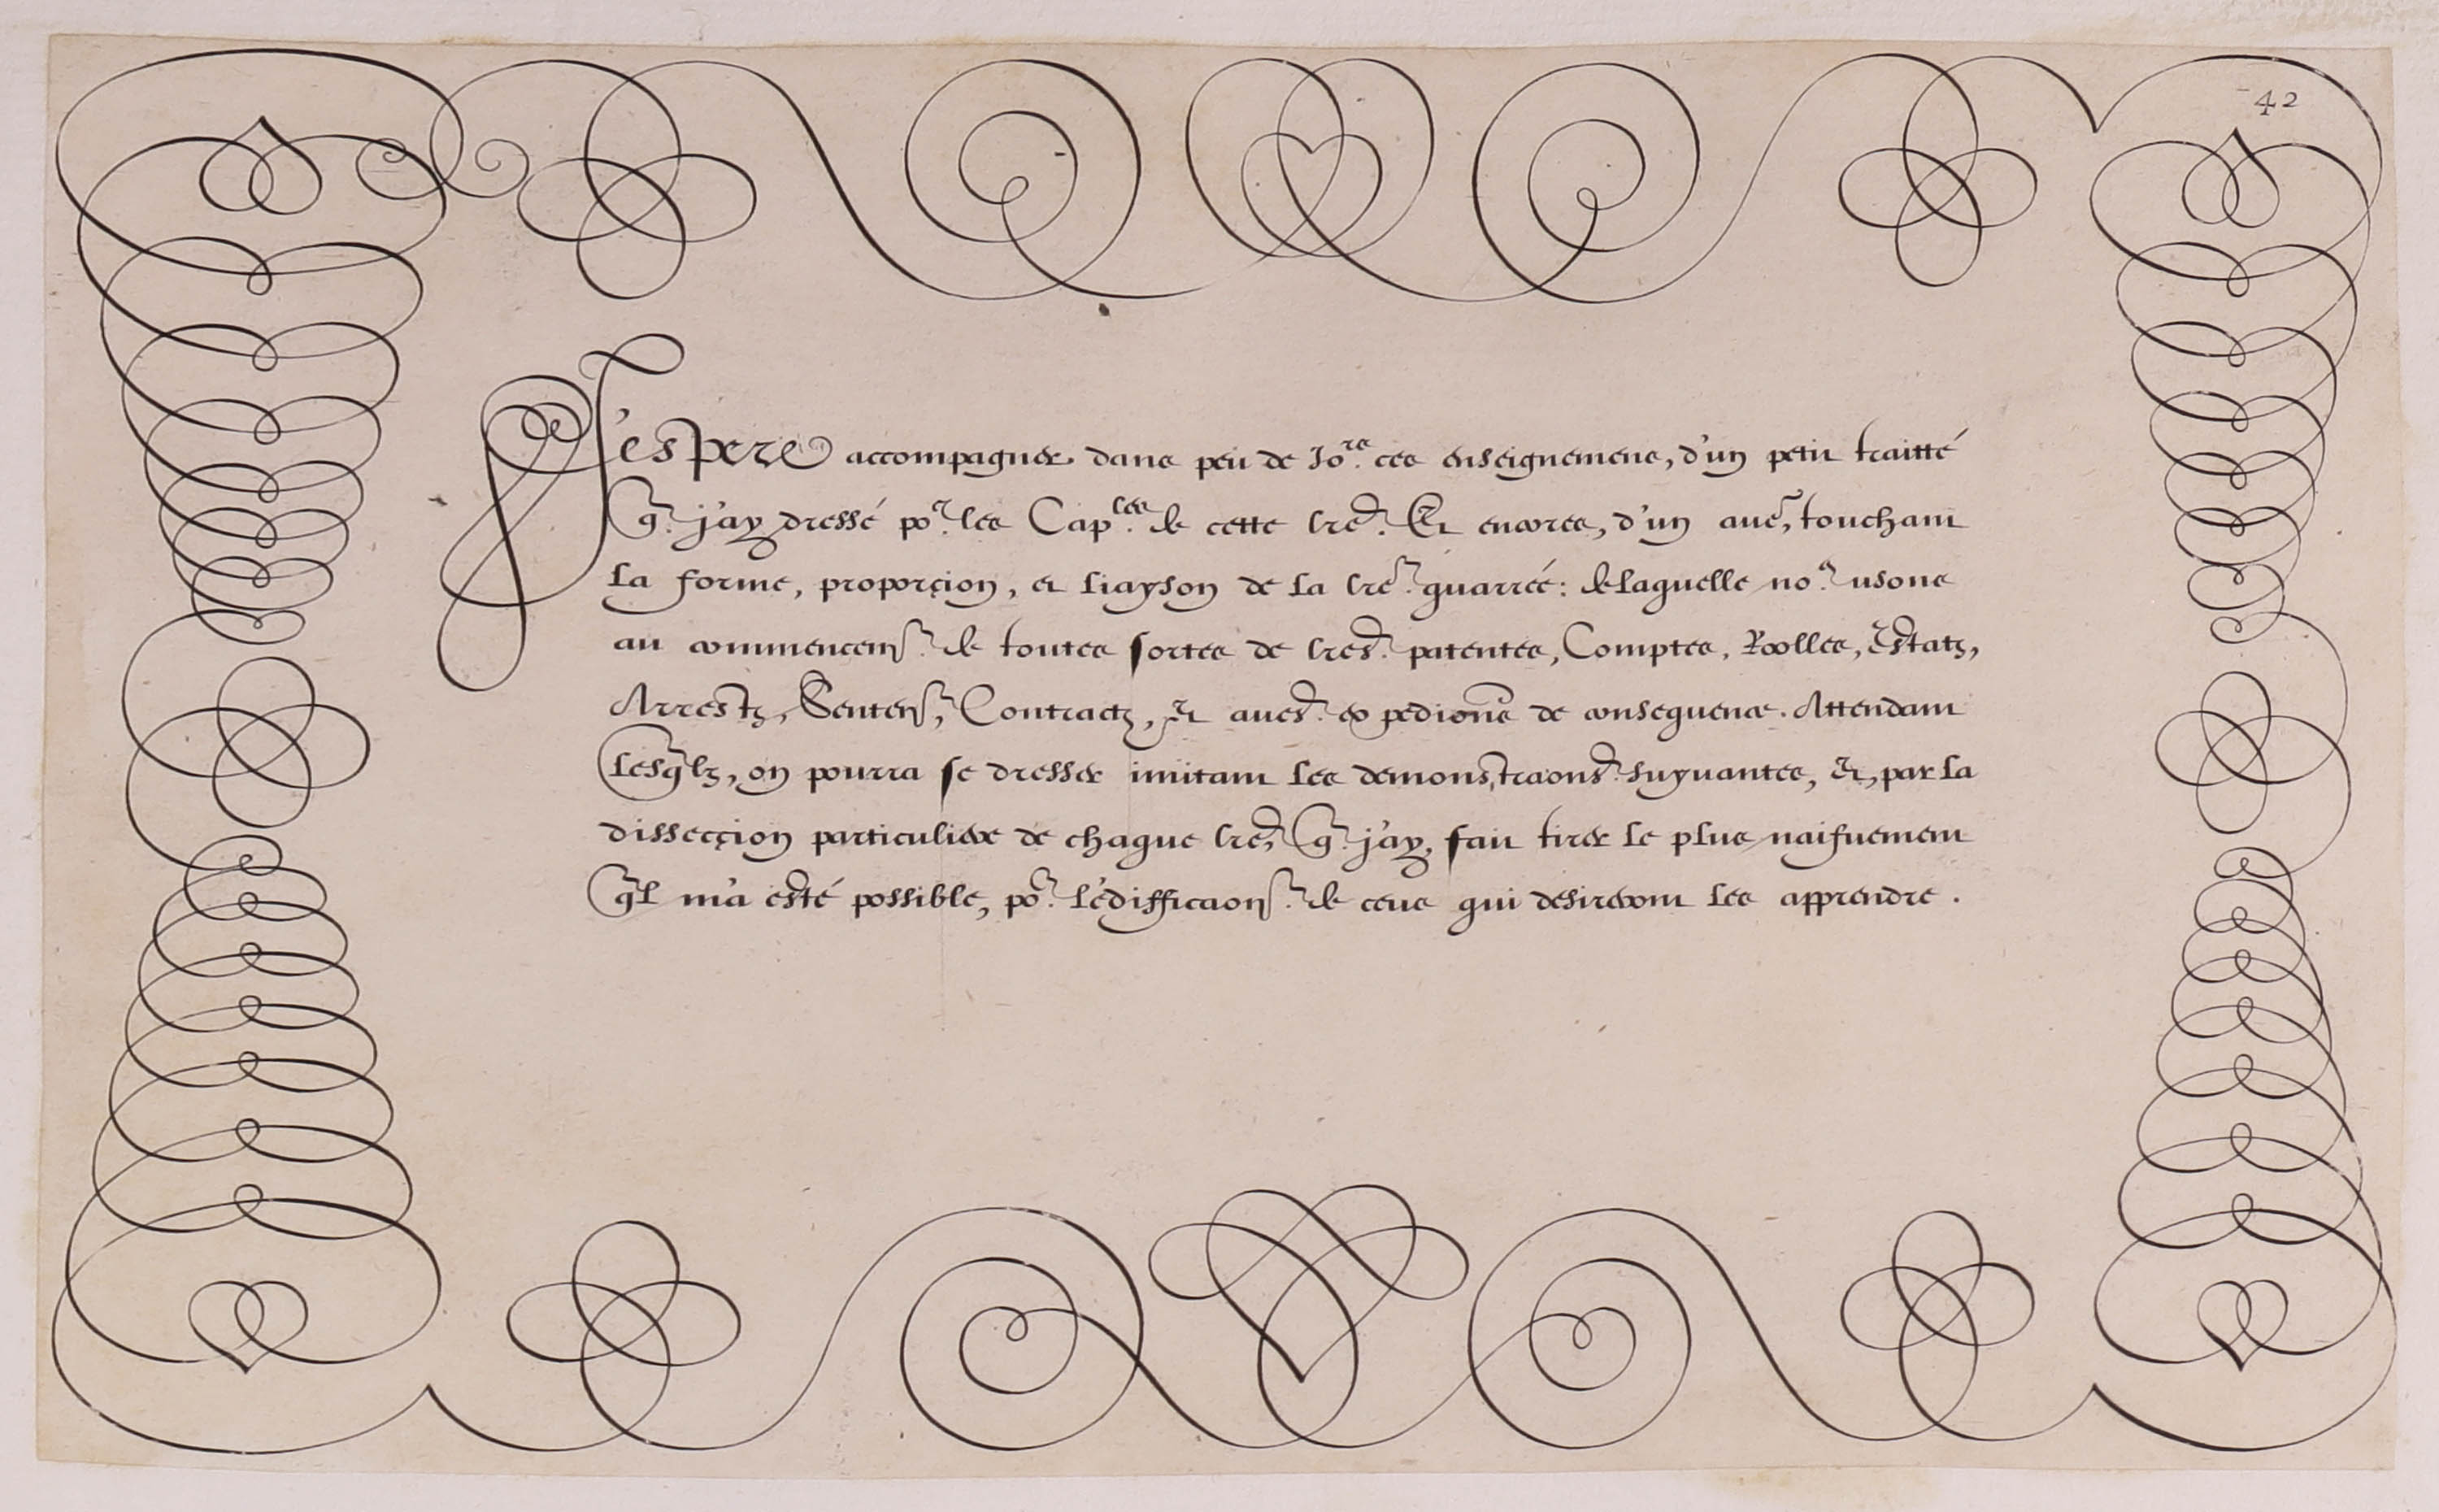 42
J'espere accompagner dans peu de Jo.rs ces enseignemens, d'un petit traitté
q. j'ay dressé po.r les Cap.les de cette lre. Et encores, d'un aue, touchant
la forme, proporçion, et liayson de la lre. quarrée: de laquelle no.s usons
au commencem. de toutes sortes de lres. patentes, Comptes, Roolles, Estatz,
Arrestz, Senten, Contractz, et aues. expedions de consequence. Attendant
lesqlz, on pourra se dresser imitant les demonstraons. suyuantes, et, par la
dissecçion particuliere de chaque lre, q. j'ay, fait tirer le plus naifuement
ql m'a esté possible, po.r l'édifficaon. de ceus qui desireront les apprendre.